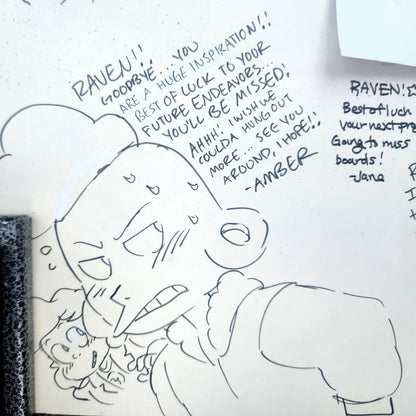 RAVEN!!
GOODBYE... YOU
ARE A HUGE INSPIRATION!!
BEST OF LUCK TO YOUR
FUTURE ENDEAVORS...
YOU'LL BE MISSED!
AHHH! I WISH WE
COULDA HUNG OUT
MORE... SEE YOU
AROUND, I HOPE!!
-AMBER
RAVEN!!
Best of luch
your next pro
Going to miss
boards!
-Jane